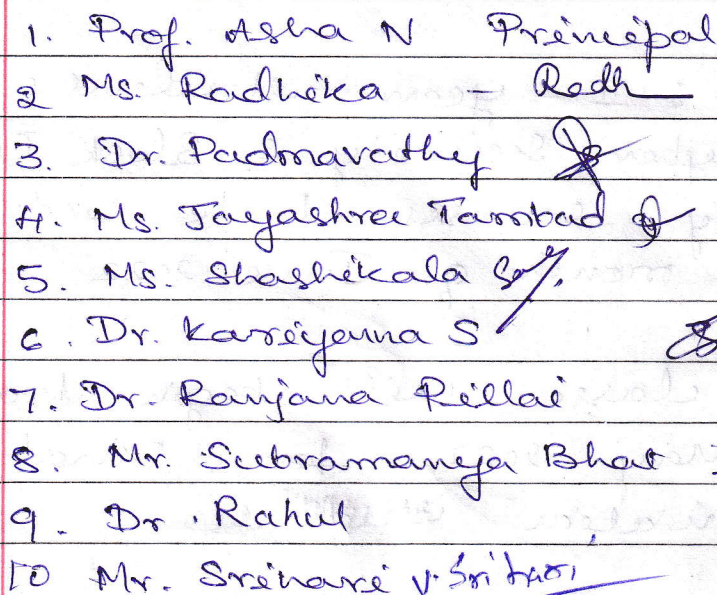 1. Prof. Asha N Principal
2 Ms. Radhika - Radh
3. Dr. Padmavathy
4. Ms. Jayashree Tambad
5. Ms. Shashikala
6. Dr. Kariyanna S
7. Dr. Ranjana Pillai
8. Mr. Subramanya Bhat
9. Dr. Rahul
10 Mr. Srihari V. Srihari